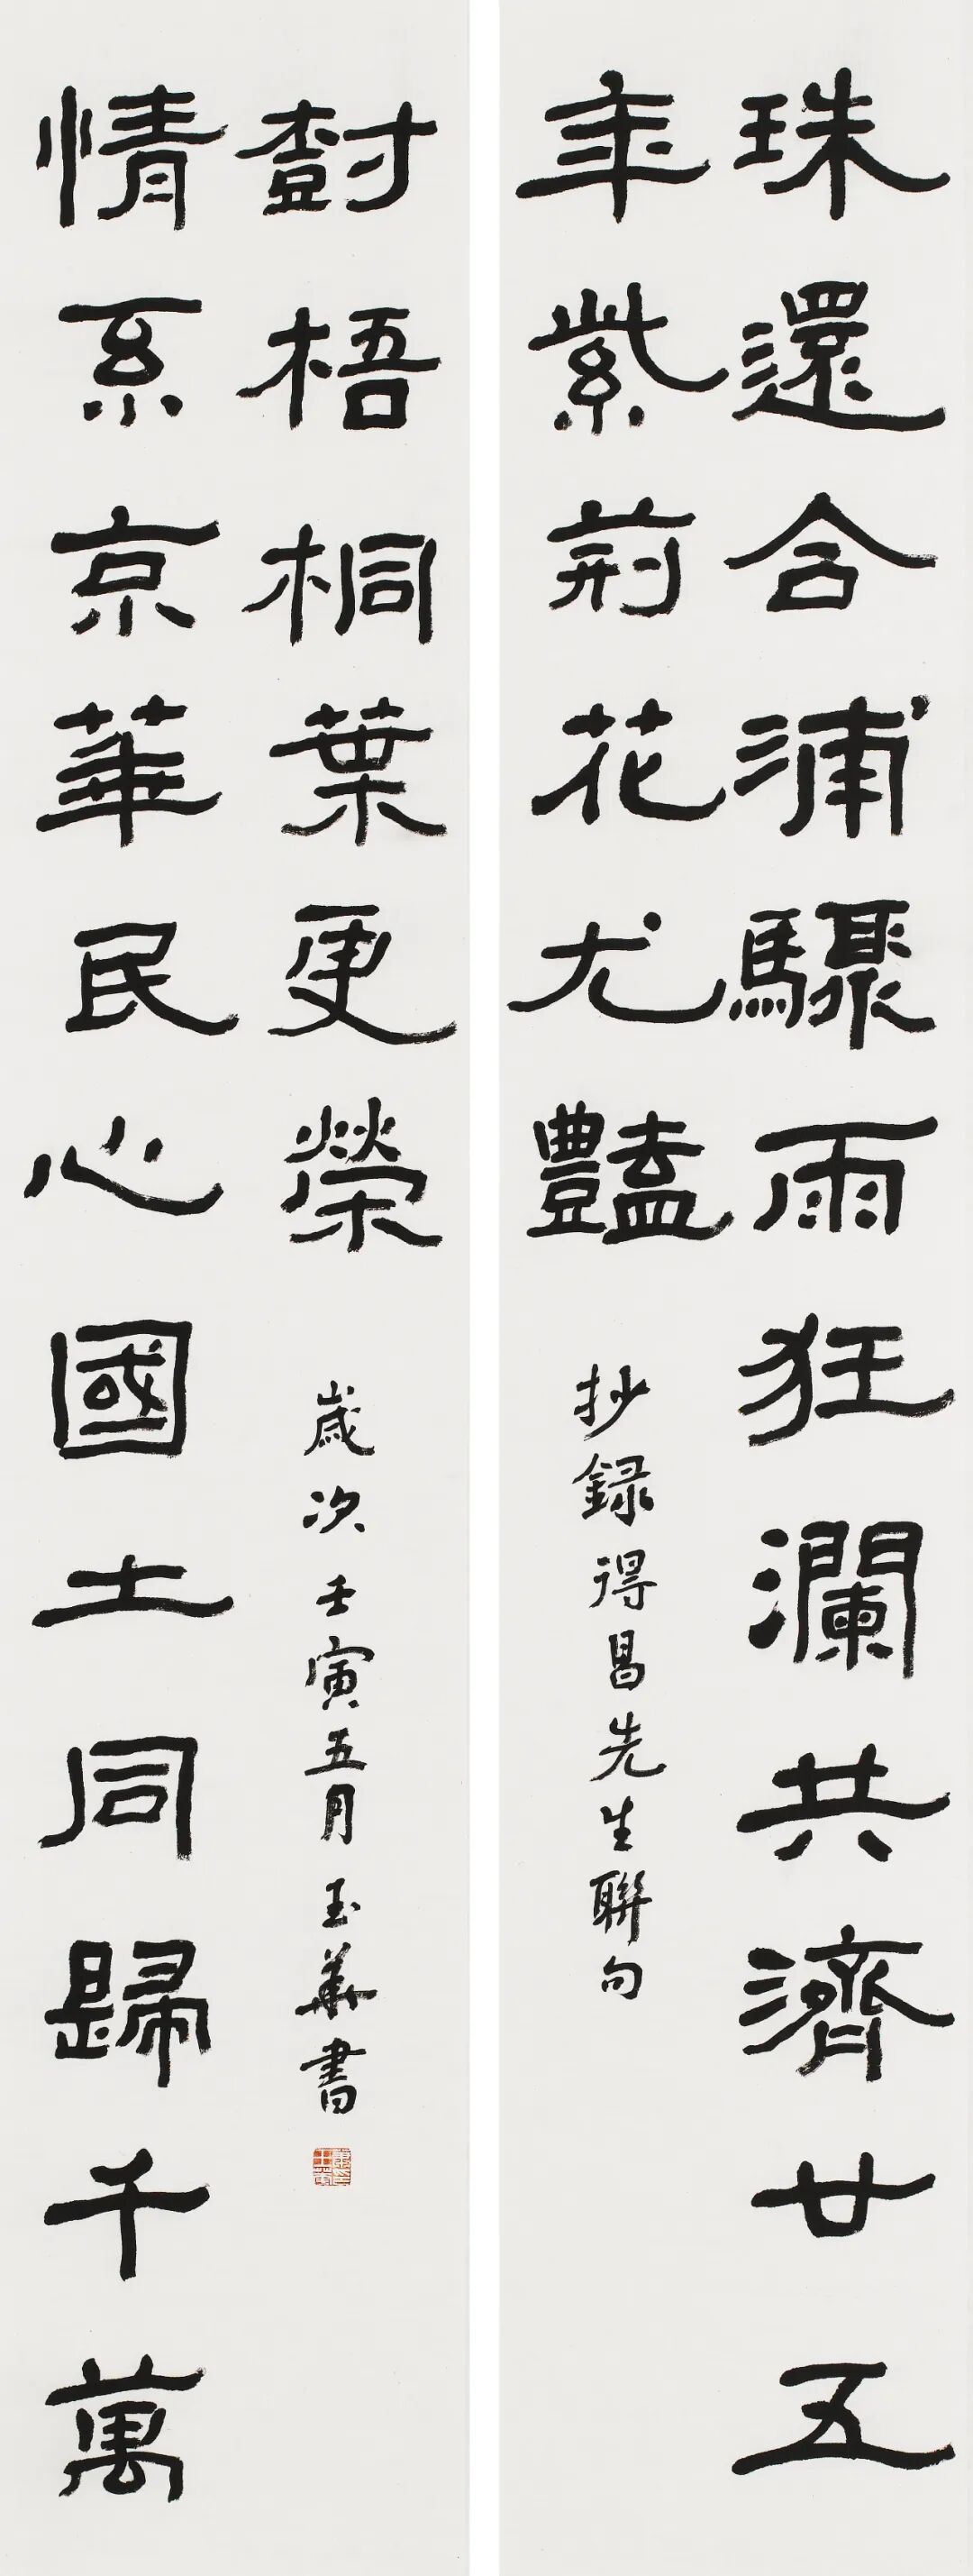 珠還合浦驟雨狂瀾共濟廿五
年紫荊花尤豔
抄録得昌先生聯句
情系京華民心國土同歸千萬
樹梧桐葉更榮
歲次壬寅五月玉華書